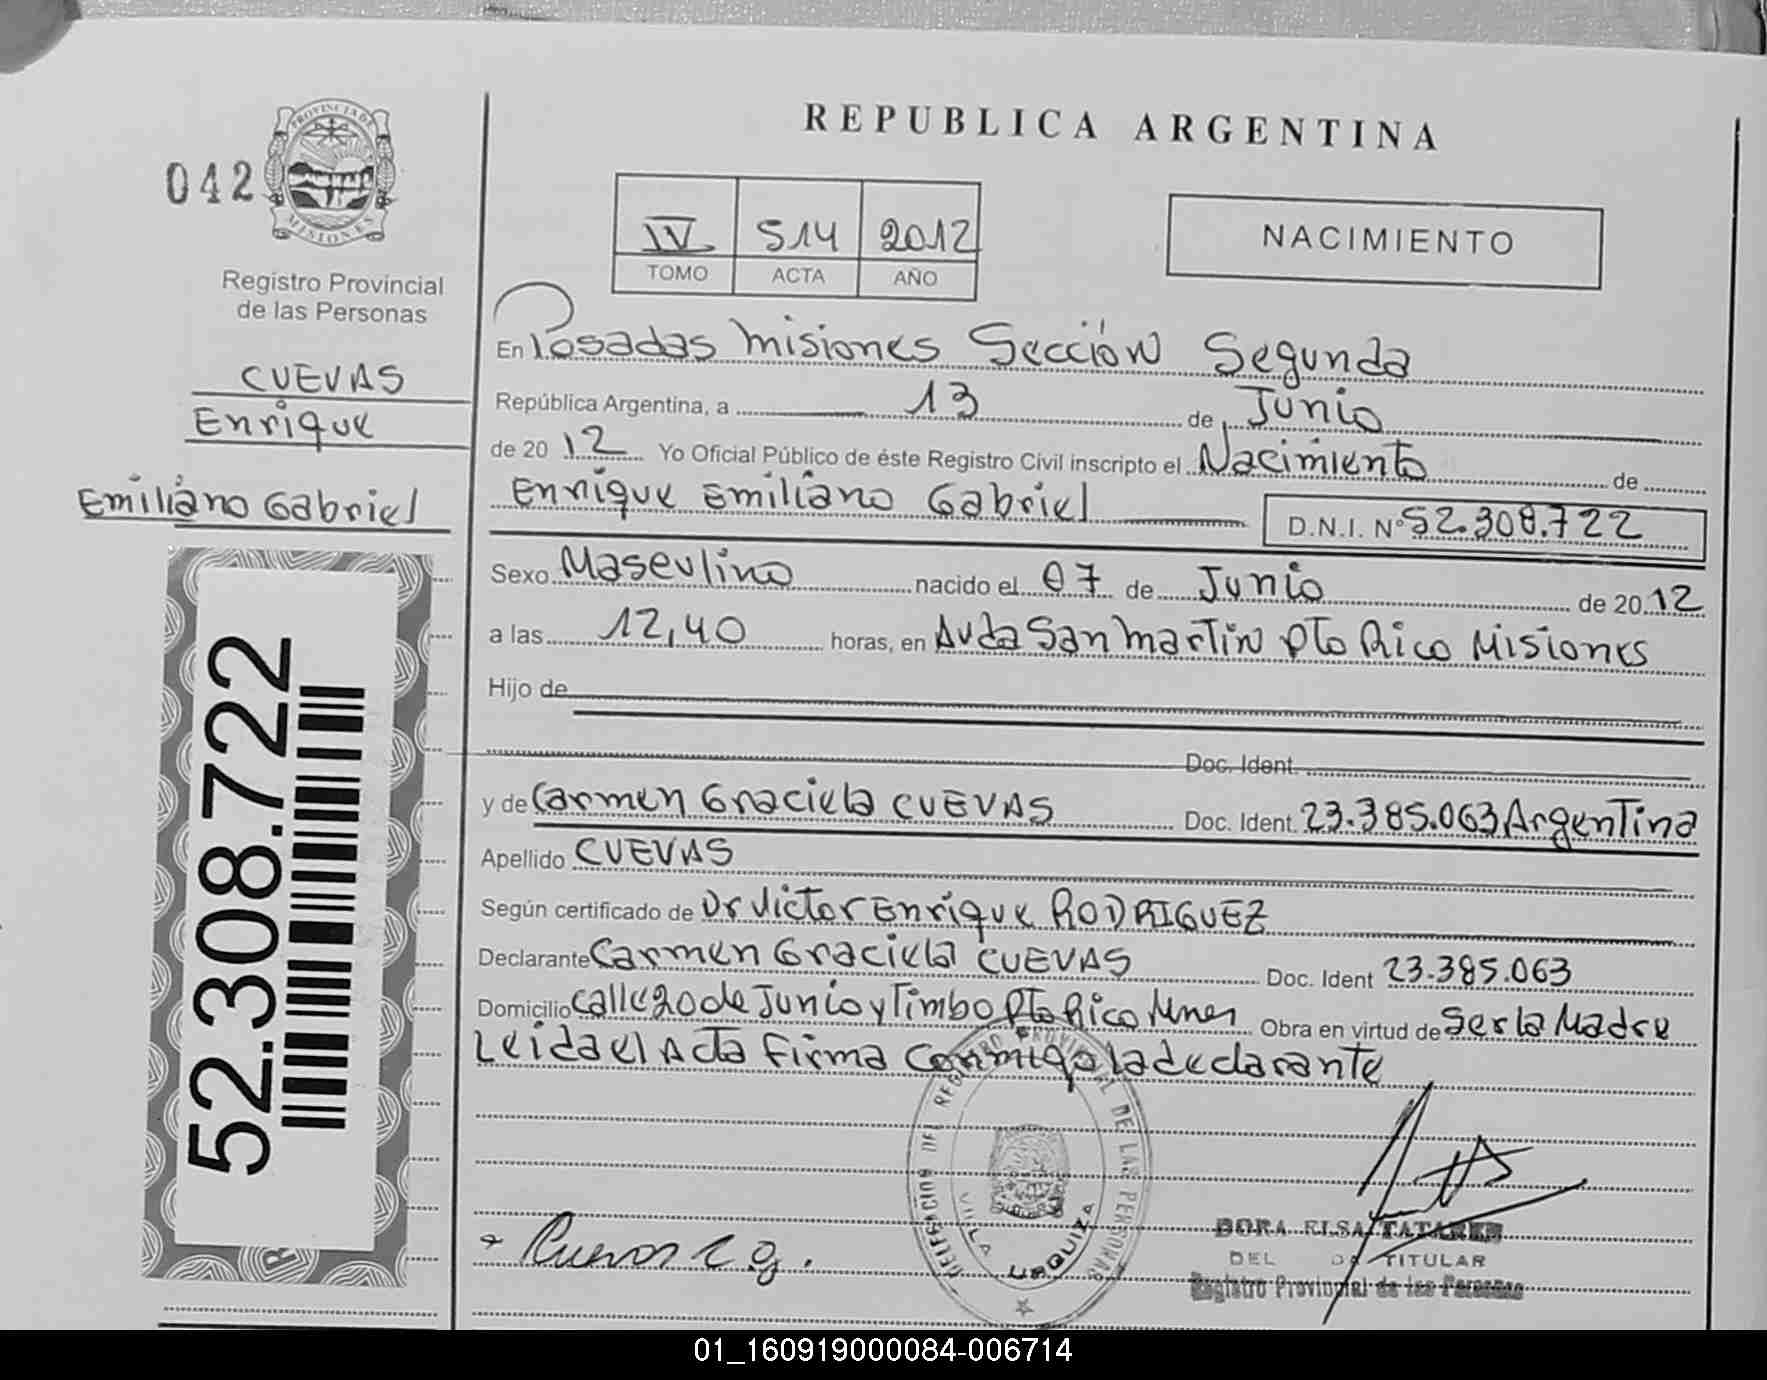 REPUBLICA ARGENTINA
042
PROVINCIA DE
MISIONES
Registro Provincial
de las Personas
CUEVAS
Enrique
Emiliano Gabriel
52.308.722
IV 514 2012
TOMO ACTA AÑO
NACIMIENTO
En Posadas Misiones Sección Segunda
República Argentina, a 13 de Junio
de 2012 Yo Oficial Público de éste Registro Civil inscripto el Nacimiento de
Enrique Emiliano Gabriel D.N.I. Nº 52.308.722
Sexo Masculino nacido el 07 de Junio de 2012
a las 12,40 horas, en Avda San Martin Pto Rico Misiones
Hijo de
Doc. Ident.
y de Carmen Graciela CUEVAS Doc. Ident. 23.385.063 Argentina
Apellido CUEVAS
Según certificado de Dr Victor Enrique RODRIGUEZ
Declarante Carmen Graciela CUEVAS Doc. Ident 23.385.063
Domicilio Calle 20 de Junio y Timbo Pto Rico Mnes Obra en virtud de Ser la Madre
Leida el Acta Firma Conmigo la declarante
DELEGACION DEL REGISTRO PROVINCIAL DE LAS PERSONAS
VILLA URQUIZA
Cuevas C. g.
DORA ELSA
DEL TITULAR
Registro Provincial de las Personas
01_160919000084-006714